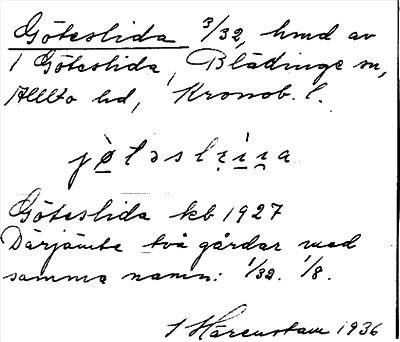 Göteslida 3/32, hmd av
1 Göteslida, Blädinge sn,
Allbo hd, Kronob. l.
Göteslida kb 1927
Därjämte två gårdar med
samma namn: 1/32. 1/8.
1936